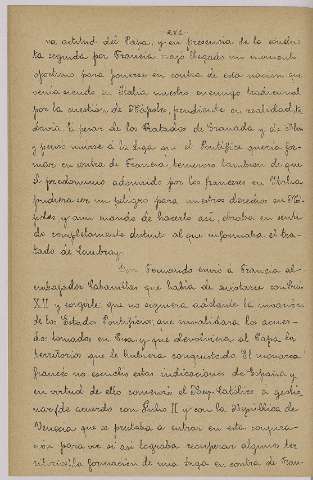 va actitud del Papa, y en presencia de la conduc-
ta seguida por Francia creyó llegado un momento
oportuno para ponerse en contra de esta nacion que
venia siendo en Italia nuestro enemigo tradicional
por la cuestion de Nápoles, pendiente en realidad to-
davia á pesar de los Tratados de Granada y de Blois
y penso unirse á la liga que el Pontifice queria for-
mar en contra de Francia temeroso tambien de que
el predominio adquirido por los franceses en Italia
pudiera ser un peligro para nuestros derechos en Ná-
poles y aun cuando de hacerlo asi, obraba en senti-
do completamente distinto al que informaba el tra-
tado de Cambray.
Don Fernando envió á Francia al
embajador Cabanillas que habia de avistarse con Luis
XII y exigirle que no siguiera adelante la invasion
de los Estados Pontificios, que invalidara los acuer-
dos tomados en Pisa y que devolviera al Papa los
territorios que le hubiera conquistado. El monarca
francés no escuchó estas indicaciones de España y
en virtud de ello comenzó el Rey Católico á gestio-
nar de acuerdo con Julio II y con la República de
Venecia que se prestaba á entrar en esta conjura-
cion para ver si asi lograba recuperar algunos ter
ritorios la formacion de una liga en contra de Fran-